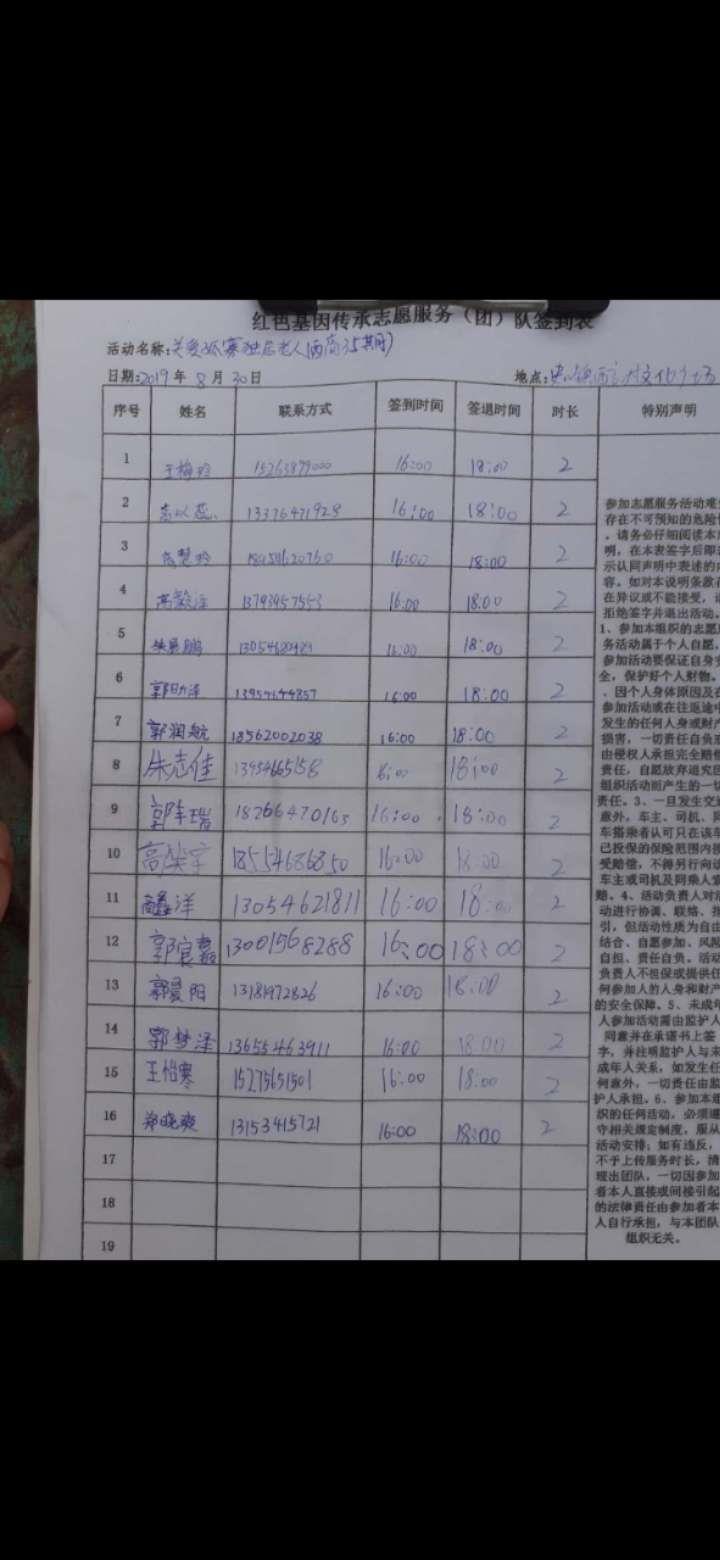 红色基因传承志愿服务（团）队签到表
活动名称：关爱孤寡独居老人
日期：2019年 8月 30日 地点：
序号 姓名 联系方式 签到时间 签退时间 时长 特别声明
1 王梅玲 15263879000 16:00 18:00 2
2 13376471928 16:00 18:00 2
3 16:00 18:00 2
4 13793957553 16:00 18:00 2
5 16:00 18:00 2
6 13954644857 16:00 18:00 2
7 郭润航 18562002038 16:00 18:00 2
8 朱志佳 13954665158 16:00 18:00 2
9 18266470163 16:00 18:00 2
10 18554686850 16:00 18:00 2
11 13054621811 16:00 18:00 2
12 13001568288 16:00 18:00 2
13 郭晏阳 13181972826 16:00 18:00 2
14 郭梦泽 13655463911 16:00 18:00 2
15 王怡寒 15275651501 16:00 18:00 2
16 郑晓爽 13153415721 16:00 18:00 2
17
18
19
参加志愿服务活动难
存在不可预知的危险
，请务必仔细阅读本
明，在本表签字后即
示认同声明中表述的
容。如对本说明条款
在异议或不能接受，
拒绝签字并退出活动。
1、参加本组织的志愿
务活动属于个人自愿，
参加活动要保证自身安
全，保护好个人财物。
、因个人身体原因及
参加活动或在往返途中
发生的任何人身或财产
损害，一切责任自负
由侵权人承担完全赔偿
责任，自愿放弃追究
组织活动而产生的一切
责任。3、一旦发生交
意外，车主、司机、同
车搭乘者认可只在该车
已投保的保险范围内
受赔偿，不得另行向
车主或司机及同乘人
赔。4、活动负责人对
动进行协调、联络、
引，但活动性质为自由
结合、自愿参加、风险
自担、责任自负。活动
负责人不担保或提供任
何参加人的人身和财产
的安全保障。5、未成年
人参加活动需由监护人
同意并在承诺书上签
字，并注明监护人与未
成年人关系，如发生任
何意外，一切责任由监
护人承担。6、参加本
织的任何活动，必须遵
守相关规定制度，服从
活动安排；如有违反，
不予上传服务时长，清
理出团队，一切因参加
者本人直接或间接引起
的法律责任由参加者本
人自行承担，与本团队
组织无关。